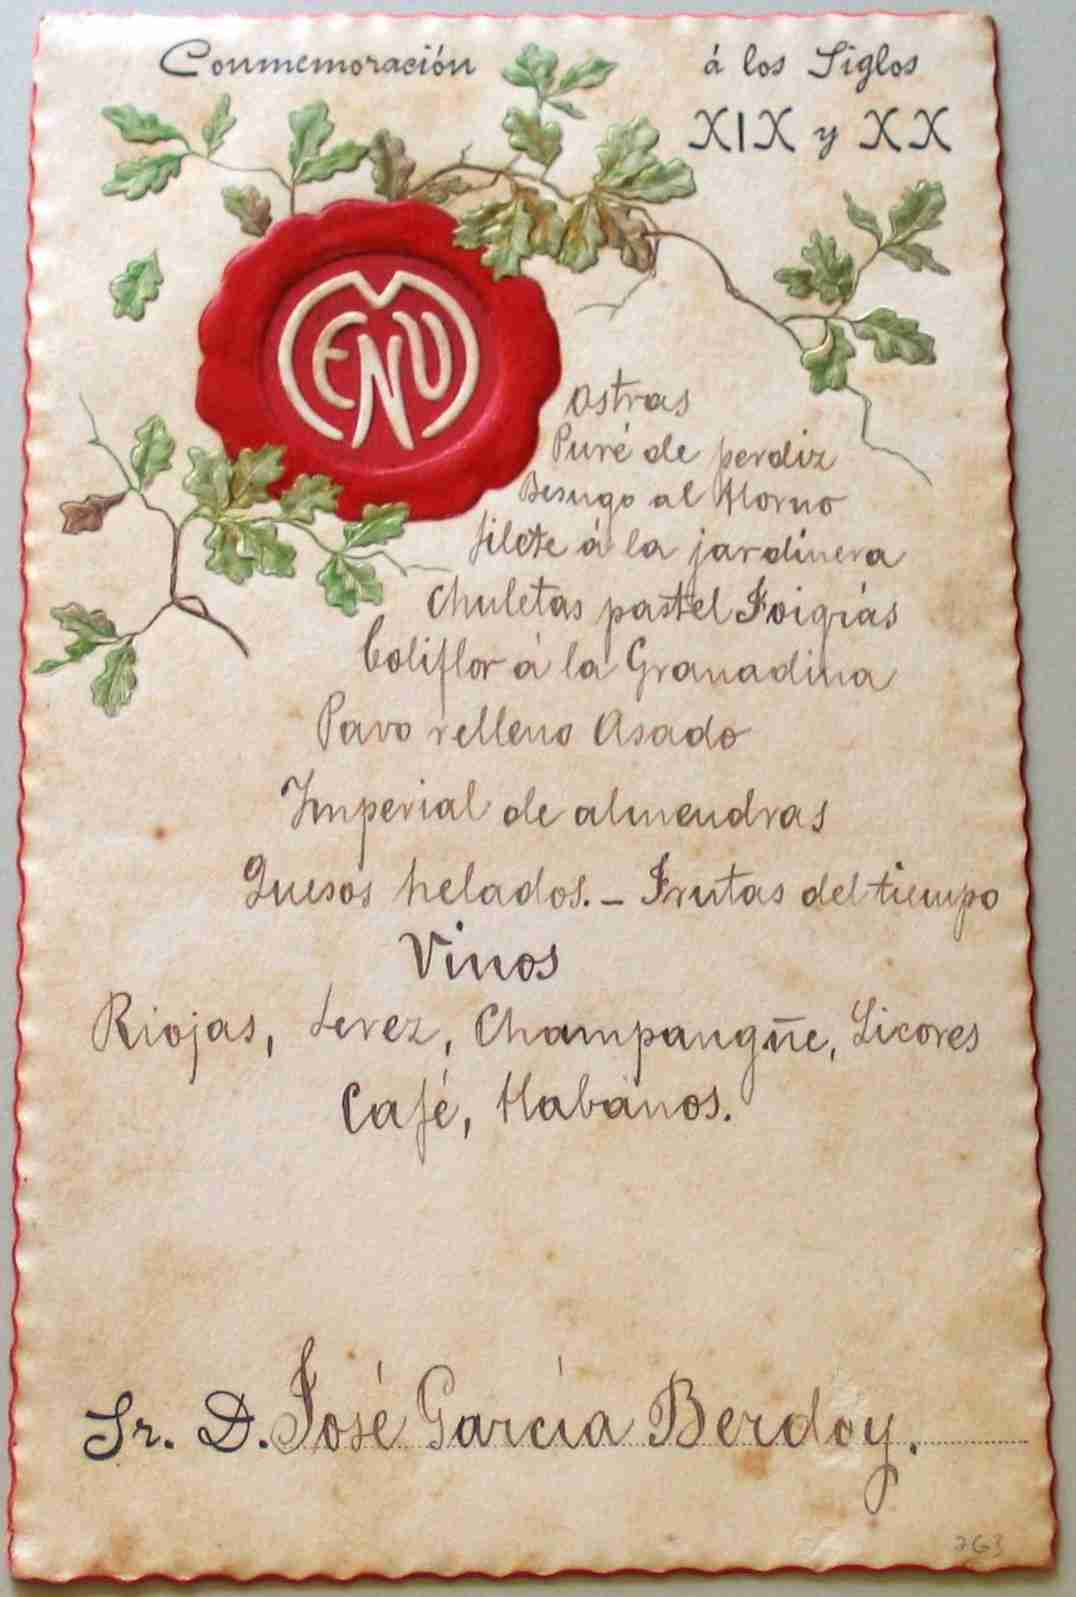 Conmemoración á los Siglos
XIX y XX
MENU
Ostras
Puré de perdiz
Besugo al Horno
filete á la jardinera
Chuletas pastel Foigrás
Coliflor á la Granadina
Pavo relleno Asado
Imperial de almendras
Quesos helados. - Frutas del tiempo
Vinos
Riojas, Jerez, Champangñe, Licores
Café, Habanos.
Sr. D. José García Berdoy.
763